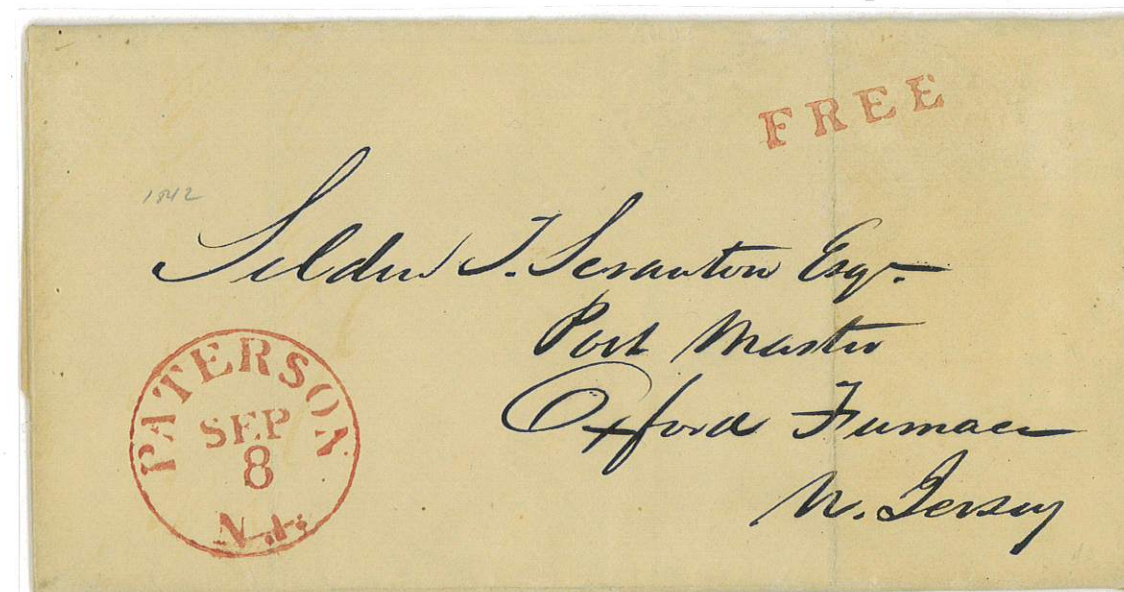 FREE
1842
Selden T. Scranton Esqr.
Post Master
Oxford Furnace
N. Jersey
PATERSON
SEP
8
N.J.